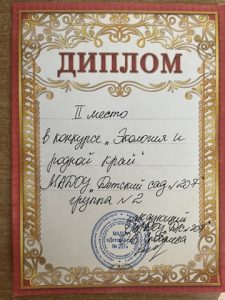 ДИПЛОМ
II место
в конкурсе „Экология и
родной край"
МАДОУ „Детский сад №207"
группа №2
заведующий
МАДОУ №207
МАДОУ
№ 207